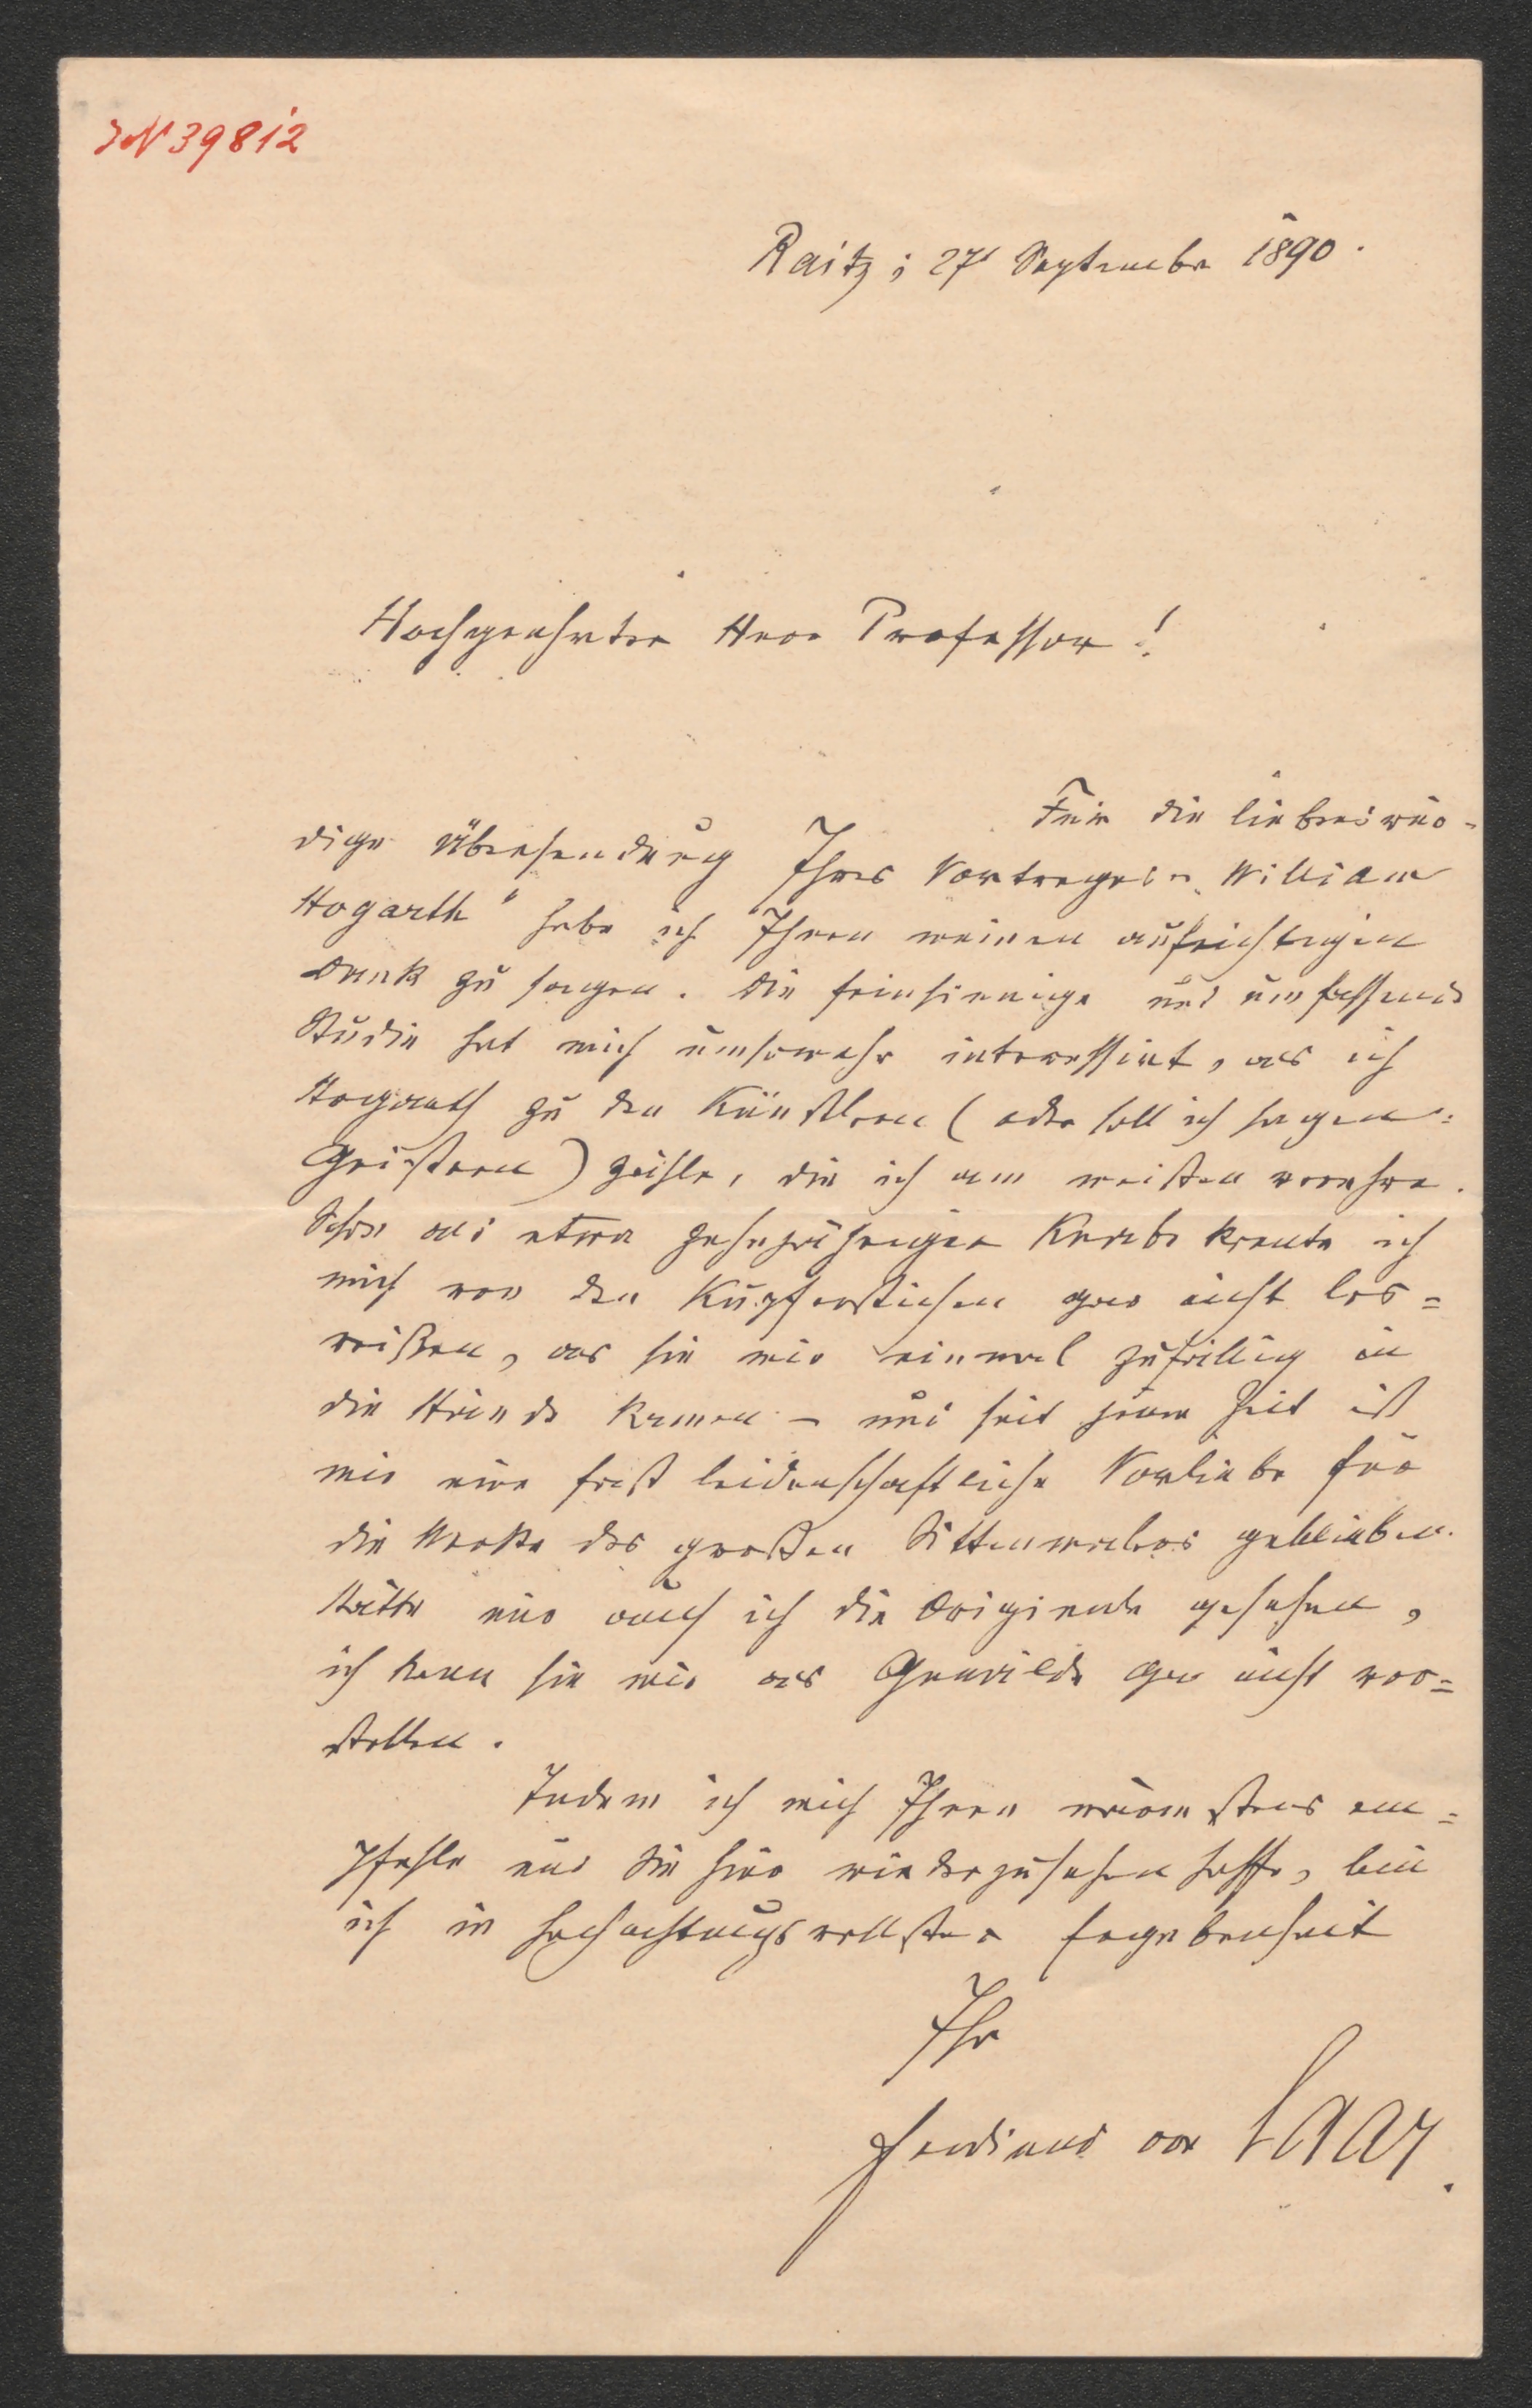 JN 39812
Raitz; 27t September 1890.
Hochgeehrter Herr Professor!
Für die liebenswür-
dige Übersendung Ihres Vortrages „William
Hogarth" habe ich Ihnen meinen aufrichtigen
Dank zu sagen. Die feinsinnige und umfassende
Studie hat mich umsomehr interessirt, als ich
Hogarth zu den Künstlern (oder soll ich sagen:
Geistern) zähle, die ich am meisten verehre.
Schon als etwa zehnjähriger Knabe konnte ich
mich von den Kupferstichen gar nicht los=
reißen, als sie mir einmal zufällig in
die Hände kamen – und seit jener Zeit ist
mir eine fast leidenschaftliche Vorliebe für
die Werke des großen Sittenmalers geblieben.
Hätte nur auch ich die Originale gesehen,
ich kann sie mir als Gemälde gar nicht vor=
stellen.
Indem ich mich Ihnen wärmstens em=
pfehle und Sie hier wiederzusehen hoffe, bin
ich in hochachtungsvollster Ergebenheit
Ihr
Ferdinand von Saar.